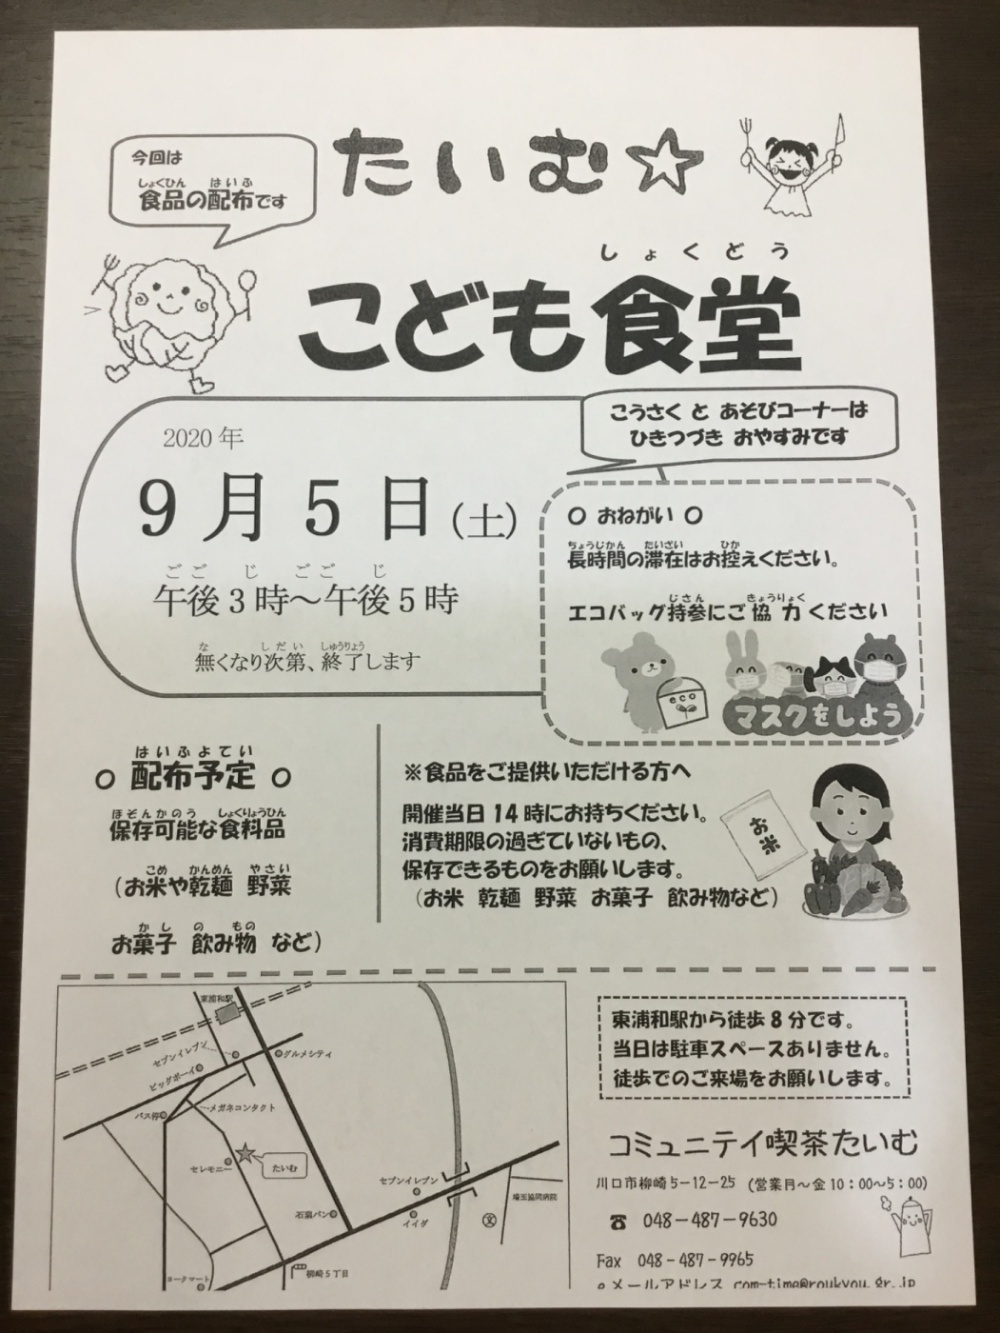 今回は
しょくひん はいふ
食品の配布です
たいむ☆
しょくどう
こども食堂
こうさく と あそびコーナーは
ひきつづき おやすみです
2020年
9月5日(土)
ごご じ ごご じ
午後3時～午後5時
な しだい しゅうりょう
無くなり次第、終了します
○ おねがい ○
ちょうじかん たいざい ひか
長時間の滞在はお控えください。
じさん きょうりょく
エコバッグ持参にご協力ください
eco
マスクをしよう
はいふよてい
○ 配布予定 ○
ほぞんかのう しょくりょうひん
保存可能な食料品
こめ かんめん やさい
(お米や乾麺 野菜
かし の もの
お菓子 飲み物 など)
※食品をご提供いただける方へ
開催当日14時にお持ちください。
消費期限の過ぎていないもの、
保存できるものをお願いします。
(お米 乾麺 野菜 お菓子 飲み物など)
お米
東浦和駅
セブンイレブン
グルメシティ
ビッグボーイ
バス停
メガネコンタクト
セレモニー
たいむ
石窯パン
セブンイレブン
イイダ
文
埼玉協同病院
柳崎5丁目
ヨークマート
東浦和駅から徒歩8分です。
当日は駐車スペースありません。
徒歩でのご来場をお願いします。
コミュニテイ喫茶たいむ
川口市柳崎5-12-25 (営業月～金10:00～5:00)
☎ 048-487-9630
Fax 048-487-9965
eメールアドレス com-time@roukyou.gr.jp